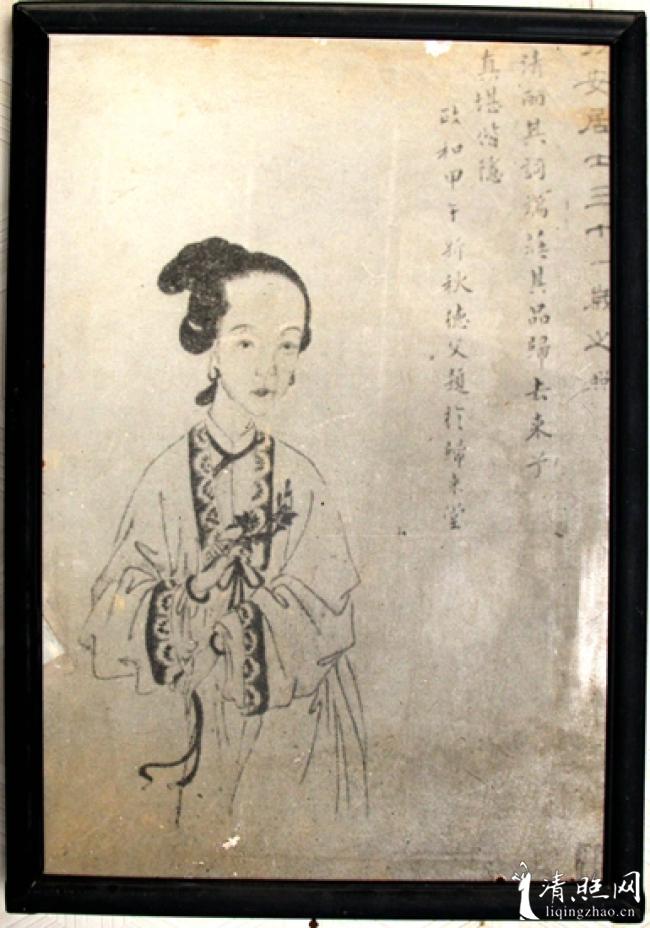 安居士三十一歲之照
清丽其詞端莊其品歸去来兮
真堪偕隱
政和甲午新秋德父題於歸来堂
清照网
liqingzhao.cn